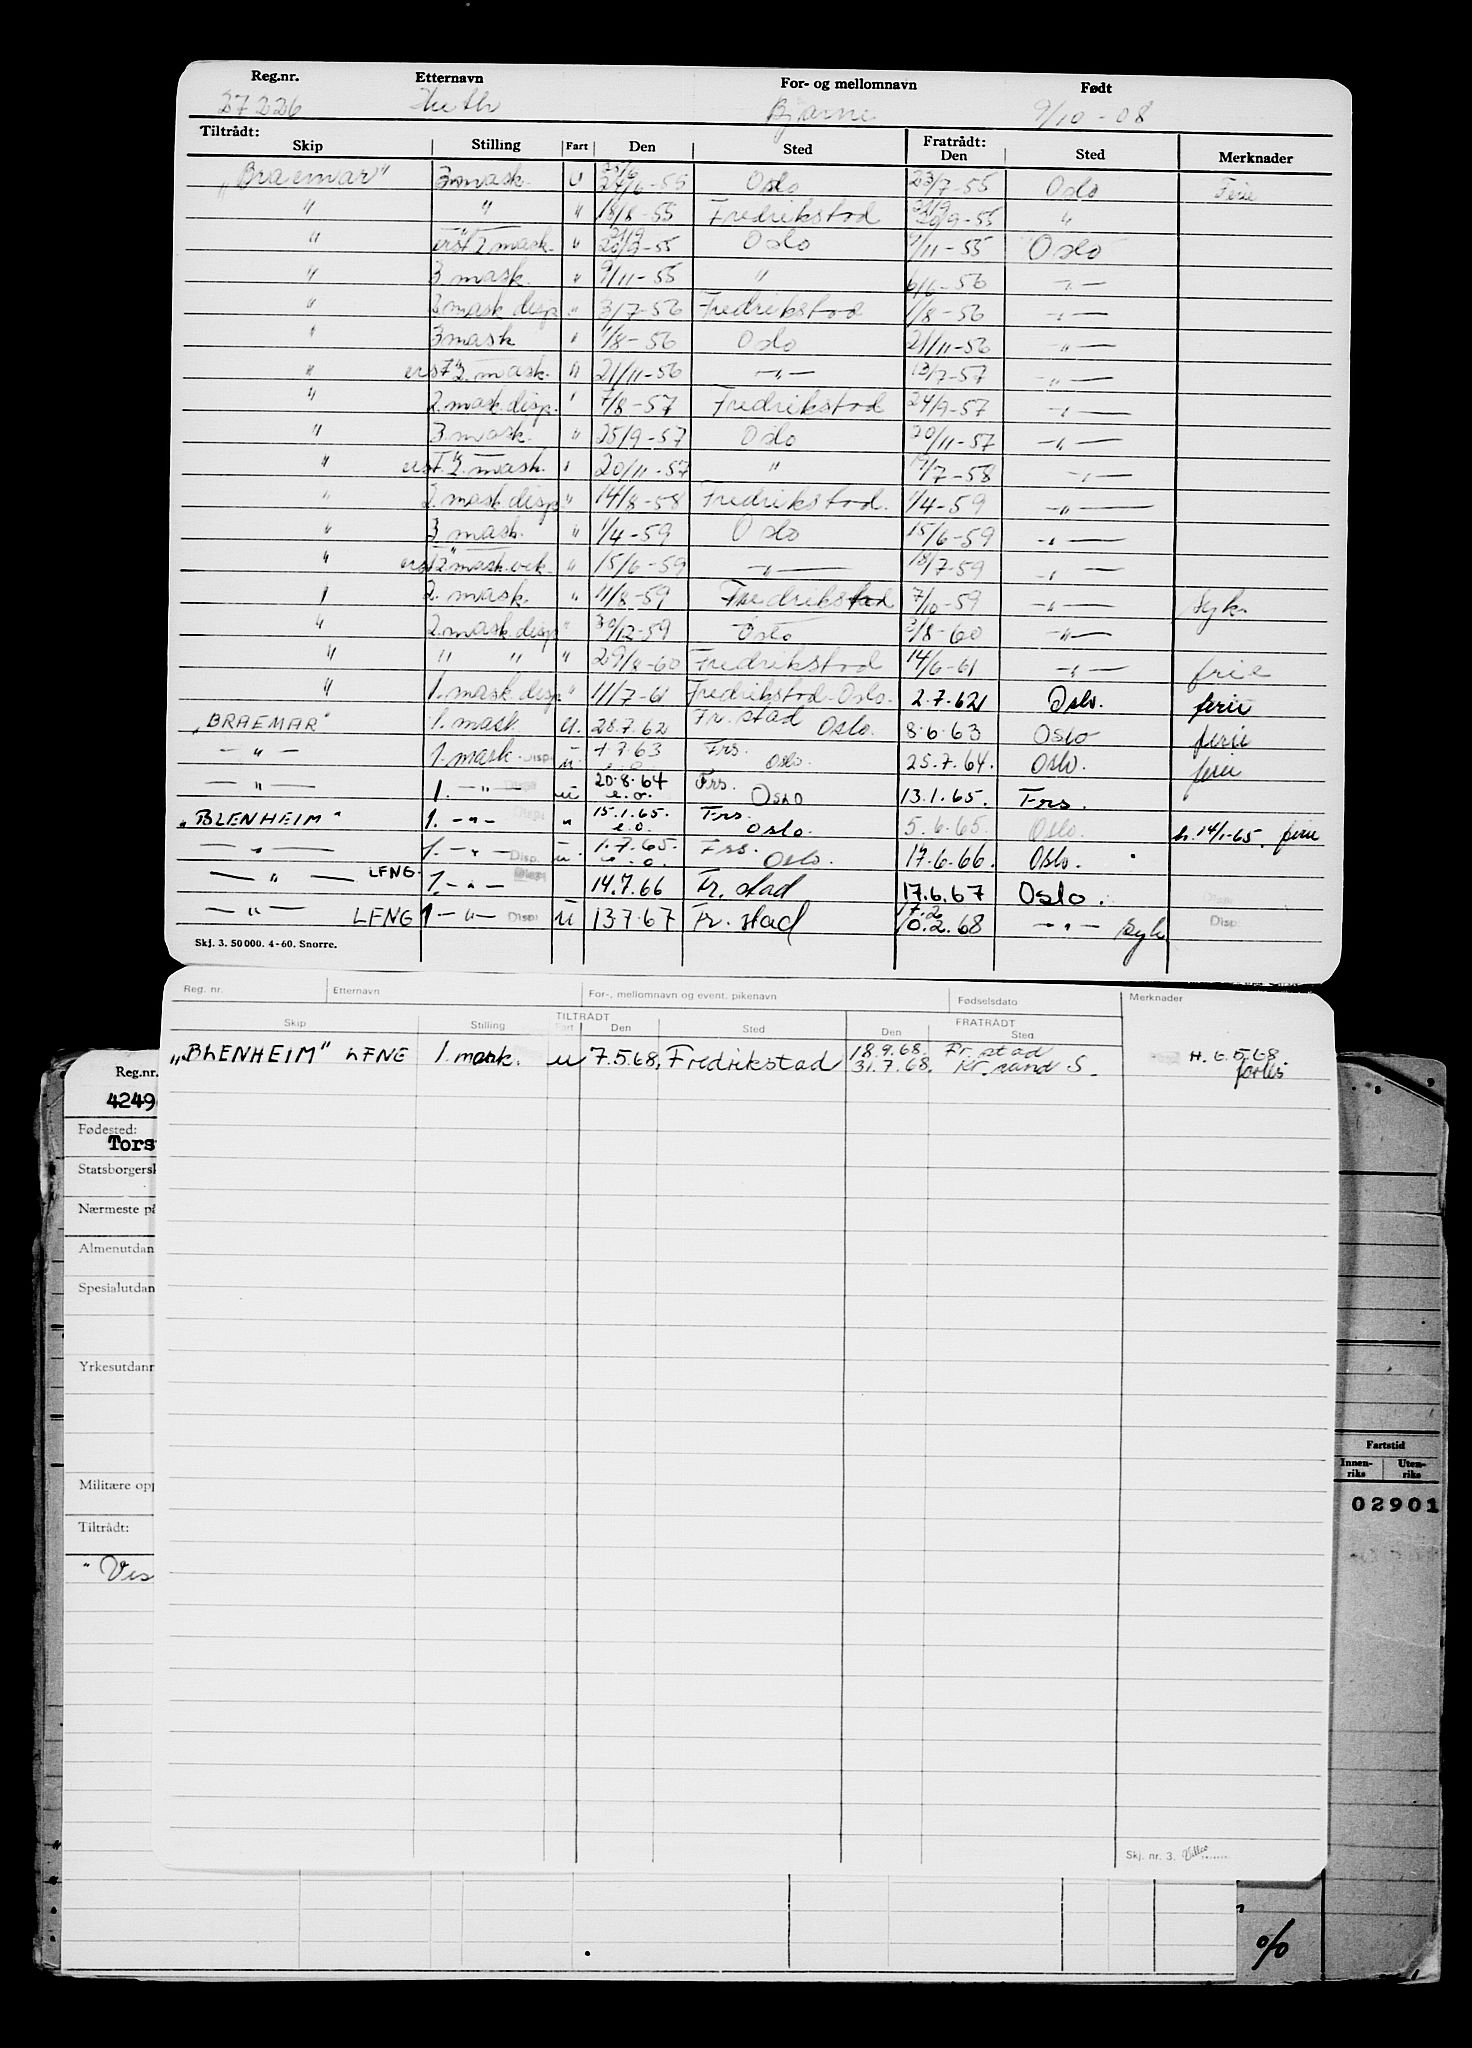 Reg.nr. Etternavn For- og mellomnavn Født
27226 Huth Bjarne 9/10-08
Tiltrådt: Fratrådt:
Skip Stilling Fart Den Sted Den Sted Merknader
„Braemar" 3mask. u 25/6 24/6-55 Oslo 23/7-55 Oslo Ferie
" " " 18/8-55 Fredrikstad 21/9 20/9-55 "
" erst 2 mask. " 21/9 20/9-55 Oslo 9/11-55 Oslo
" 3 mask. " 9/11-55 " 6/6-56 -"-
" 3 mask disp " 3/7-56 Fredrikstad 1/8-56 -"-
" 3 mask " 1/8-56 Oslo 21/11-56 -"-
" erst 2. mask. " 21/11-56 -"- 13/7-57 -"-
" 2. mask. disp. " 7/8-57 Fredrikstad 24/9-57 -"-
" 3. mask. " 25/9-57 Oslo 20/11-57 -"-
" erst 2. mask. " 20/11-57 " /7-58 -"-
" 2. mask disp " 14/8-58 Fredrikstad. 1/4-59 -"-
" 3 mask. " 1/4-59 Oslo 15/6-59 -"-
" erst 2 mask. vek. " 15/6-59 -"- 18/7-59 -"-
" 2. mask. " 11/8-59 Fredrikstad 7/10-59 -"- Syk.
" 2. mask. disp " 30/12-59 Oslo 3/8-60 -"-
" " " " 29/8-60 Fredrikstad 14/6-61 -"- ferie
" 1. mask. disp " 11/7-61 Fredrikstad-Oslo. 2.7.62 Oslo. ferie
„BRAEMAR" 1. mask u. 28.7.62 Fr. stad Oslo. 8.6.63 Oslo ferie
-"- 1. mask. Disp. u. 1.7.63 e.o. Frs. Oslo. 25.7.64. Oslo. ferie
-"- 1. -"- Disp. u 20.8.64 e.o. Frs. Oslo 13.1.65. Frs.
„BLENHEIM" 1. -"- Disp. " 15.1.65. e.o. Frs. Oslo. 5.6.65. Oslo. h. 14/1-65. ferie
-"- 1. -"- Disp. u. 1.7.65. e.o. Frs. Oslo. 17.6.66. Oslo.
-"- LFNG. 1. -"- Disp. 14.7.66 Fr. stad 17.6.67 Oslo. Disp.
-"- LFNG 1 -"- Disp. u 13.7.67 Fr. stad 7.2 10.2.68 -"- Syk Disp.
Skj. 3. 50 000. 4-60. Snorre.
Reg. nr. Etternavn For-, mellomnavn og event. pikenavn Fødselsdato Merknader
TILTRÅDT FRATRÅDT
Skip Stilling Fart Den Sted Den Sted
„BLENHEIM" LFNG 1. mask. u 7.5.68, Fredrikstad 18.9.68, Fr. stad H. 6.5.68
31.7.68. Kr. sand S. forlis
Reg.nr.
4249
Fødested:
Tors
Statsborgersk
Nærmeste på
Almenutdan
Spesialutdan
Yrkesutdann
Fartstid
Innen-riks Uten-riks
Militære opp
02901
Tiltrådt:
" Ves
Skj. nr. 3.
%